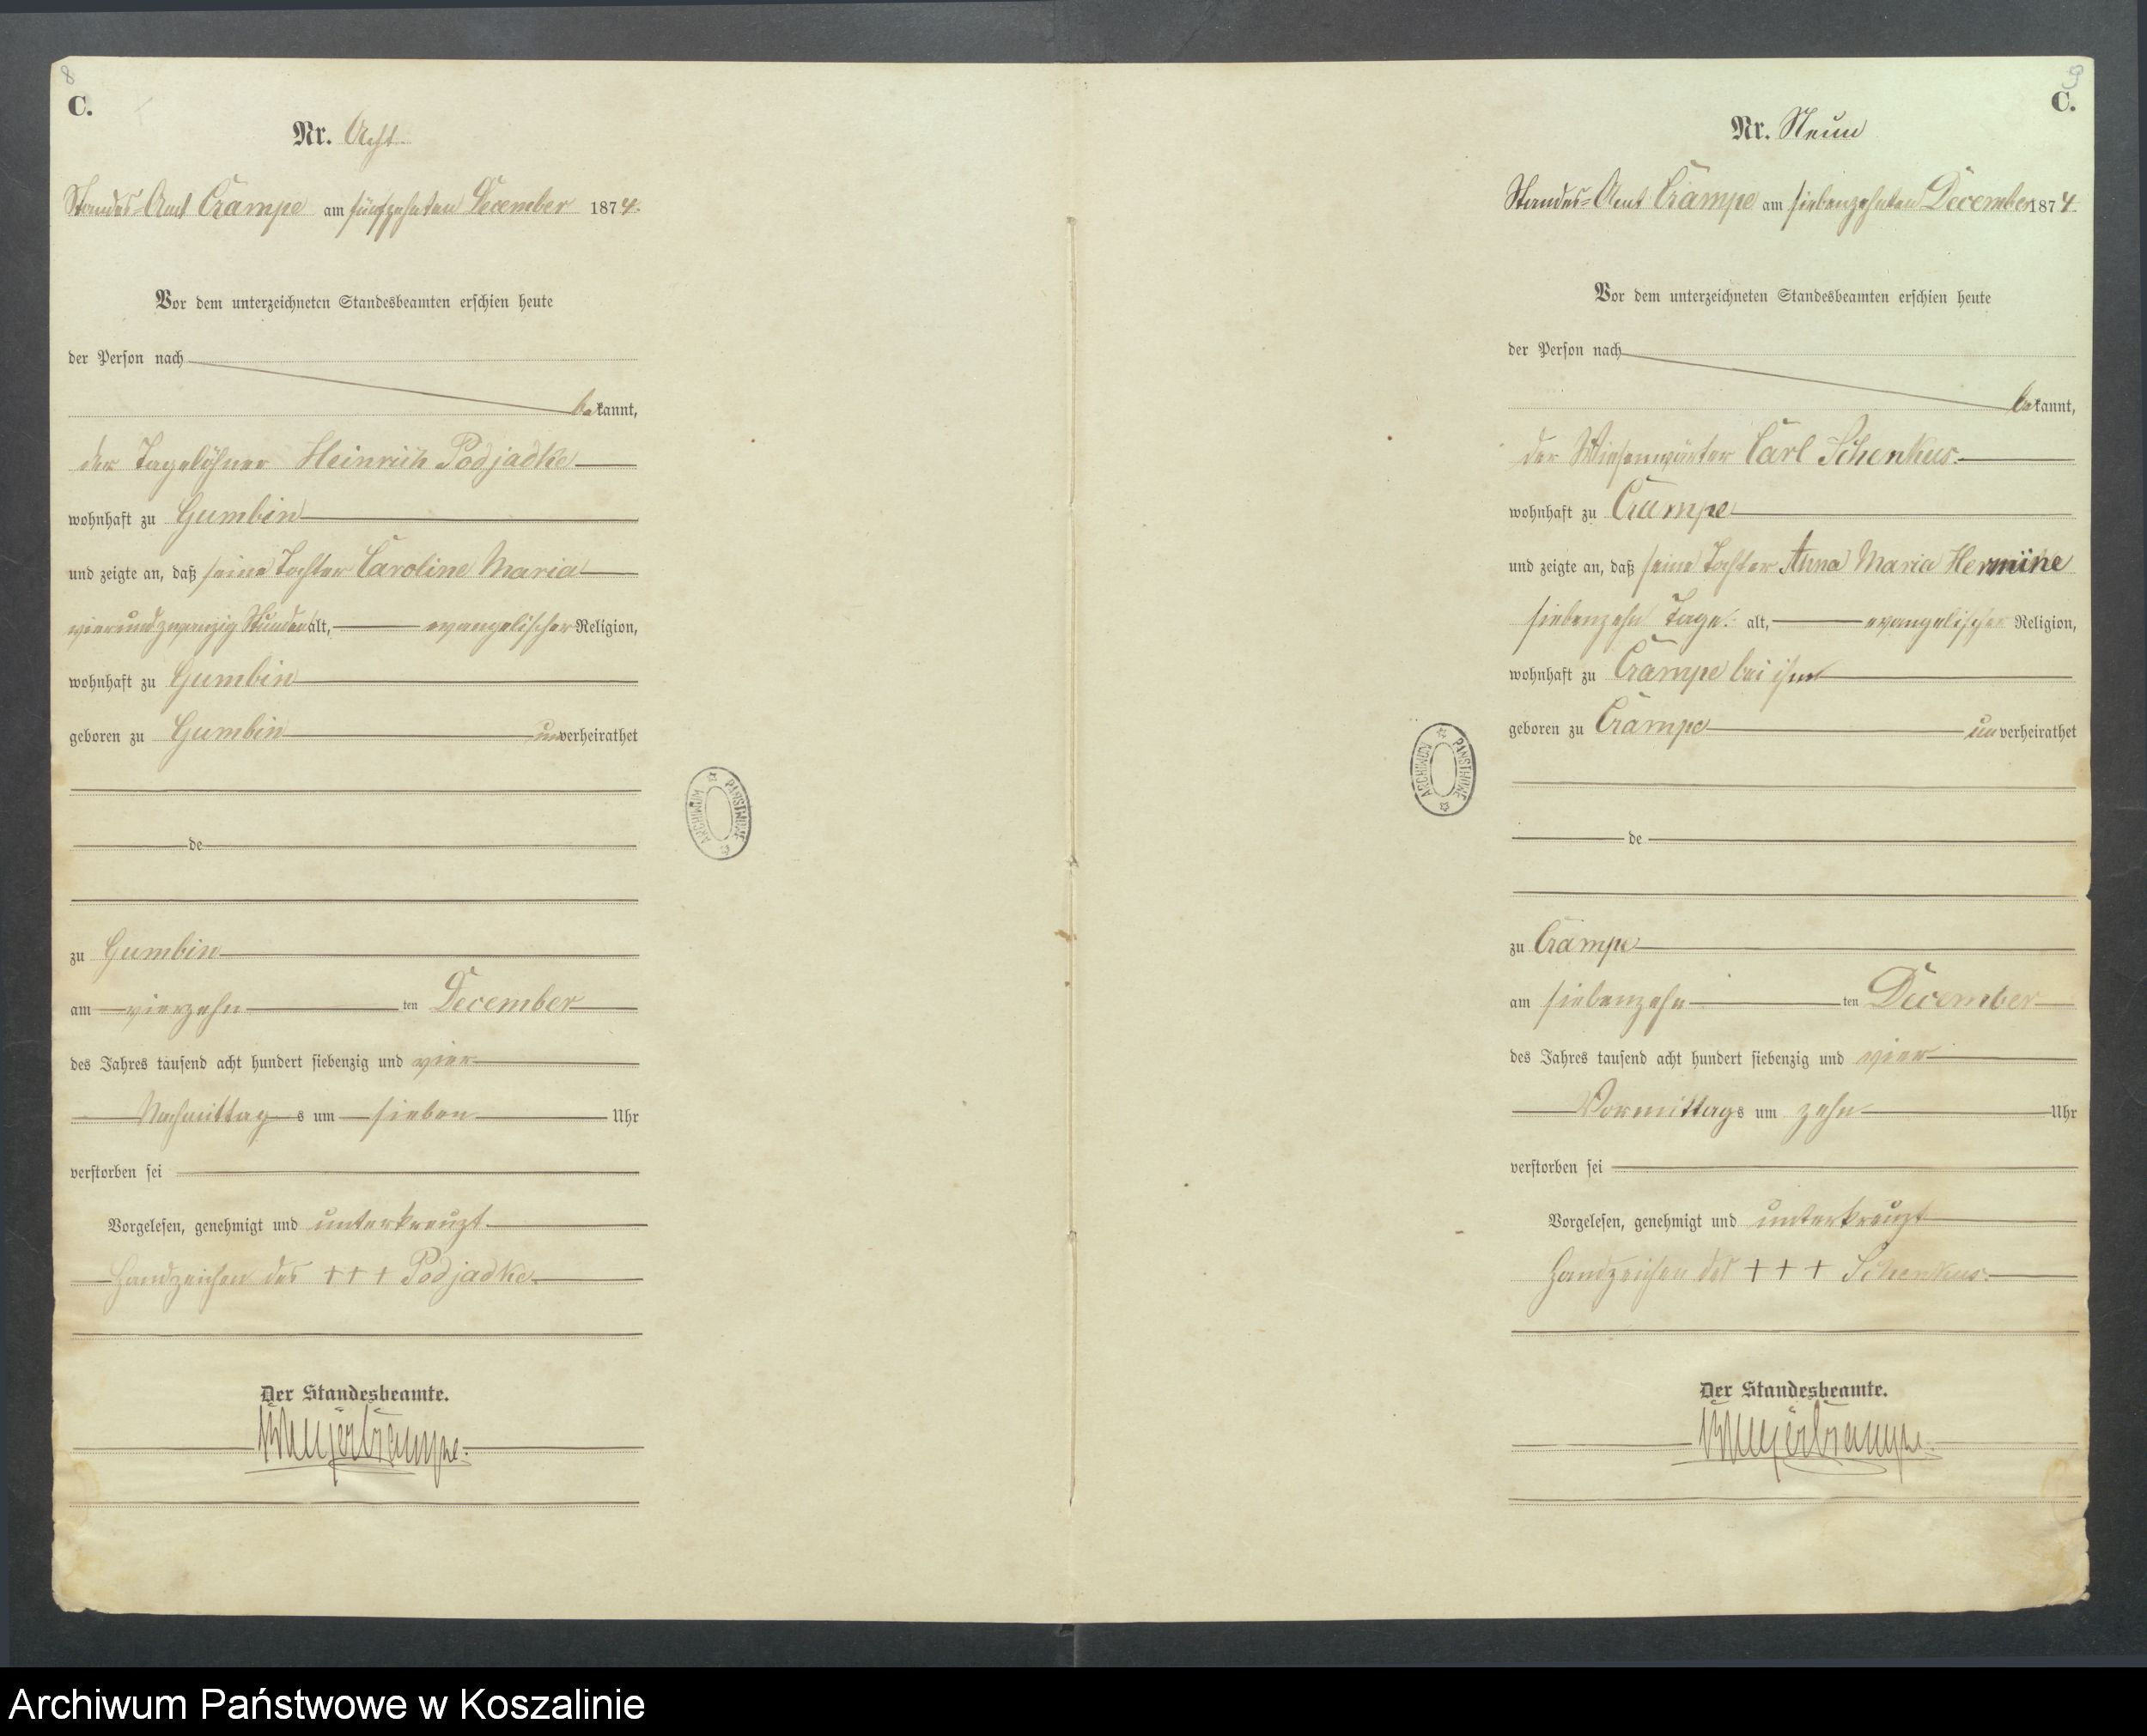 8
C.
Nr. Acht
Standes-Amt Crampe am fünfzehnten December 1874.
Vor dem unterzeichneten Standesbeamten erschien heute
der Person nach
bekannt,
der Tagelöhner Heinrich Podjadke
wohnhaft zu Gumbin
und zeigte an, daß seine Tochter Caroline Maria
vierundzwanzig Stunden alt, evangelischer Religion,
wohnhaft zu Gumbin
geboren zu Gumbin unverheirathet
de
zu Gumbin
am vierzehn ten December
des Jahres tausend acht hundert siebenzig und vier
Nachmittag s um sieben Uhr
verstorben sei
Vorgelesen, genehmigt und unterkreuzt
Handzeichen des + + + Podjadke.
Der Standesbeamte.
ARCHIWUM PAŃSTWOWE
9
C.
Nr. Neun
Standes-Amt Crampe am siebenzehnten December 1874
Vor dem unterzeichneten Standesbeamten erschien heute
der Person nach
bekannt,
der Wiesenwärter Carl Schenkus.
wohnhaft zu Crampe
und zeigte an, daß seine Tochter Anna Maria Hermine
siebenzehn Tage. alt, evangelischer Religion,
wohnhaft zu Crampe bei ihm
geboren zu Crampe unverheirathet
de
zu Crampe
am siebenzehn ten December
des Jahres tausend acht hundert siebenzig und vier
Vormittags um zehn Uhr
verstorben sei
Vorgelesen, genehmigt und unterkreuzt
Handzeichen des + + + Schenkus.
Der Standesbeamte.
ARCHIWUM PAŃSTWOWE
Archiwum Państwowe w Koszalinie